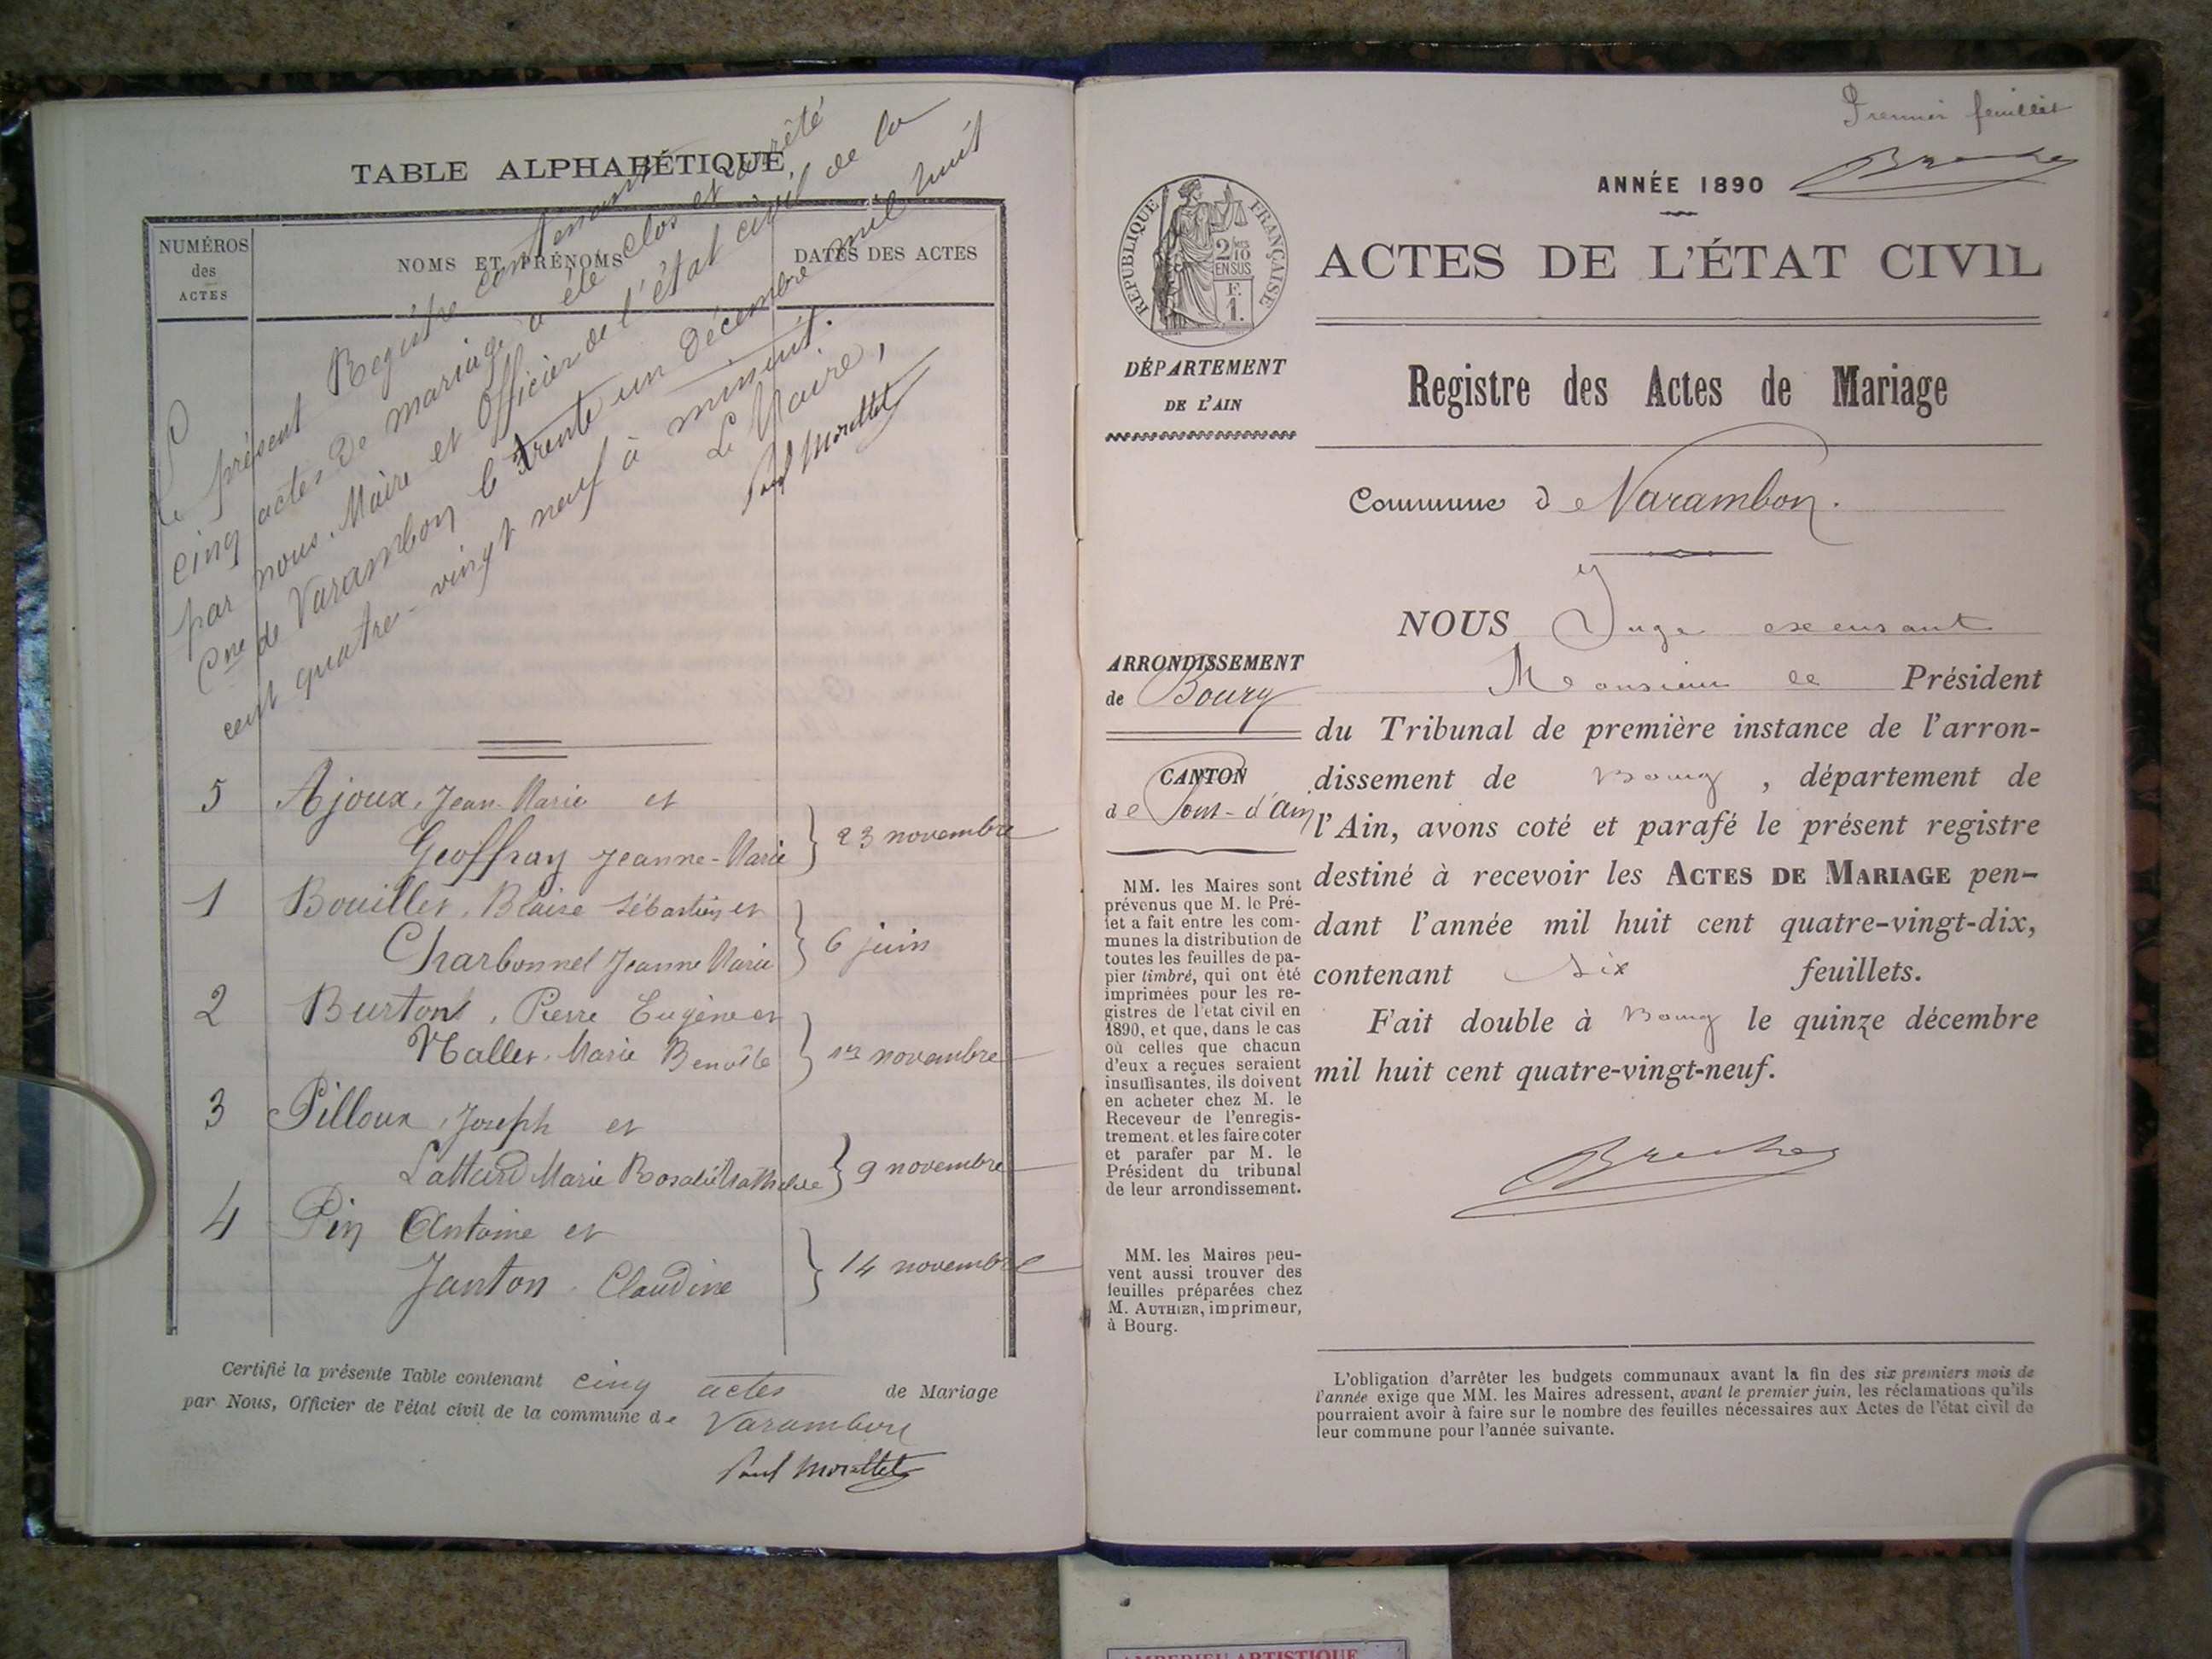 TABLE ALPHABÉTIQUE
NUMÉROS
des
ACTES
NOMS ET PRÉNOMS
DATES DES ACTES
Le présent Registre contenant
cinq actes de mariage a été clos et arrêté
par nous, Maire et Officier de l'état civil de la
Cne de Varambon le trente un décembre mil huit
cent quatre-vingt neuf à minuit.
Le Maire,
Paul Morellet
5 Ajoux, Jean-Marie et
Geoffray Jeanne-Marie } 23 novembre
1 Bouillet, Blaise Sébastien et
Charbonnel Jeanne Marie } 6 juin
2 Burtont, Pierre Eugène et
Marie Benoîte } 1er novembre
3 Pilloux, Joseph et
Marie Rosalie } 9 novembre
4 Pin Antoine et
Janton, Claudine } 14 novembre
Certifié la présente Table contenant cinq actes de Mariage
par Nous, Officier de l'état civil de la commune de Varambon
Paul Morellet
Premier feuillet
ANNÉE 1890
RÉPUBLIQUE FRANÇAISE
2/10
EN SUS
F.
1.
ACTES DE L'ÉTAT CIVIL
DÉPARTEMENT
DE L'AIN
Registre des Actes de Mariage
Commune de Varambon.
ARRONDISSEMENT
de Bourg
CANTON
de Pont-d'Ain
MM. les Maires sont
prévenus que M. le Pré-
fet a fait entre les com-
munes la distribution de
toutes les feuilles de pa-
pier timbré, qui ont été
imprimées pour les re-
gistres de l'état civil en
1890, et que, dans le cas
où celles que chacun
d'eux a reçues seraient
insuffisantes, ils doivent
en acheter chez M. le
Receveur de l'enregis-
trement. et les faire coter
et parafer par M. le
Président du tribunal
de leur arrondissement.
MM. les Maires peu-
vent aussi trouver des
feuilles préparées chez
M. AUTHIER, imprimeur,
à Bourg.
NOUS Juge
Monsieur le Président
du Tribunal de première instance de l'arron-
dissement de Bourg, département de
l'Ain, avons coté et parafé le présent registre
destiné à recevoir les ACTES DE MARIAGE pen-
dant l'année mil huit cent quatre-vingt-dix,
contenant six feuillets.
Fait double à Bourg le quinze décembre
mil huit cent quatre-vingt-neuf.
L'obligation d'arrêter les budgets communaux avant la fin des six premiers mois de
l'année exige que MM. les Maires adressent, avant le premier juin, les réclamations qu'ils
pourraient avoir à faire sur le nombre des feuilles nécessaires aux Actes de l'état civil de
leur commune pour l'année suivante.
AMBERIEU ARTISTIQUE